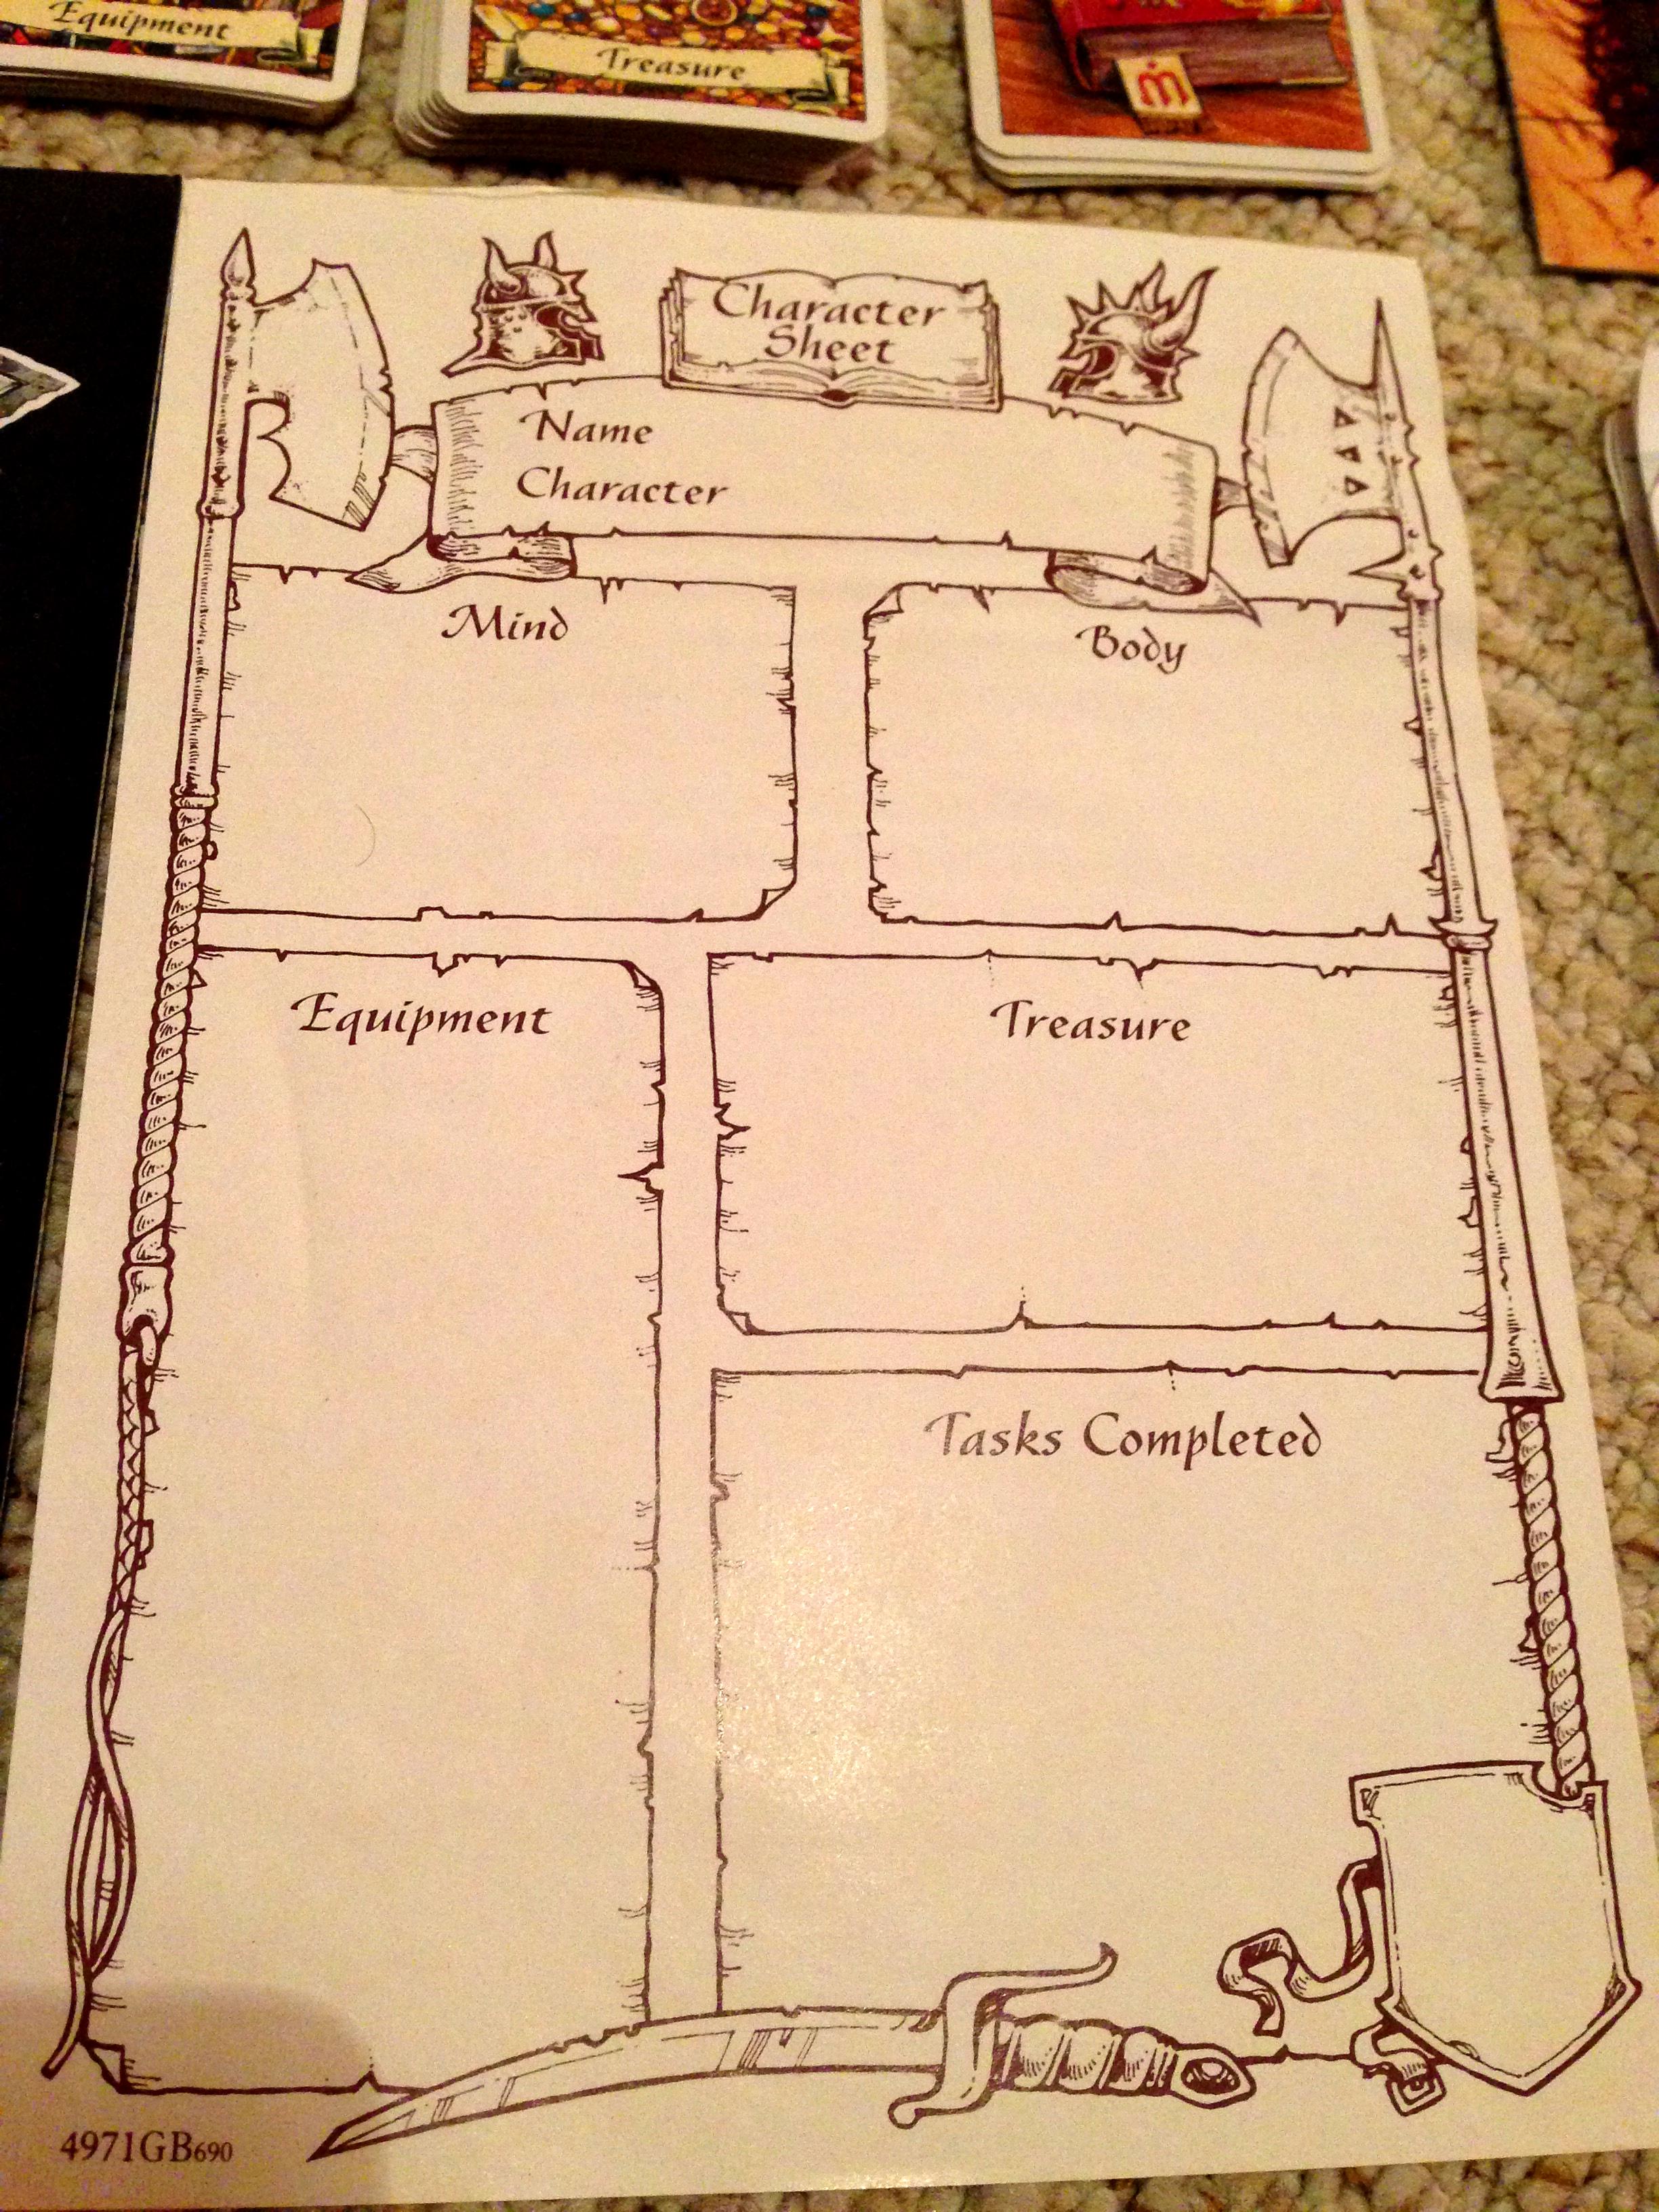 Equipment
Treasure
Character
Sheet
Name
Character
Mind
Body
Equipment
Treasure
Tasks Completed
4971GB690